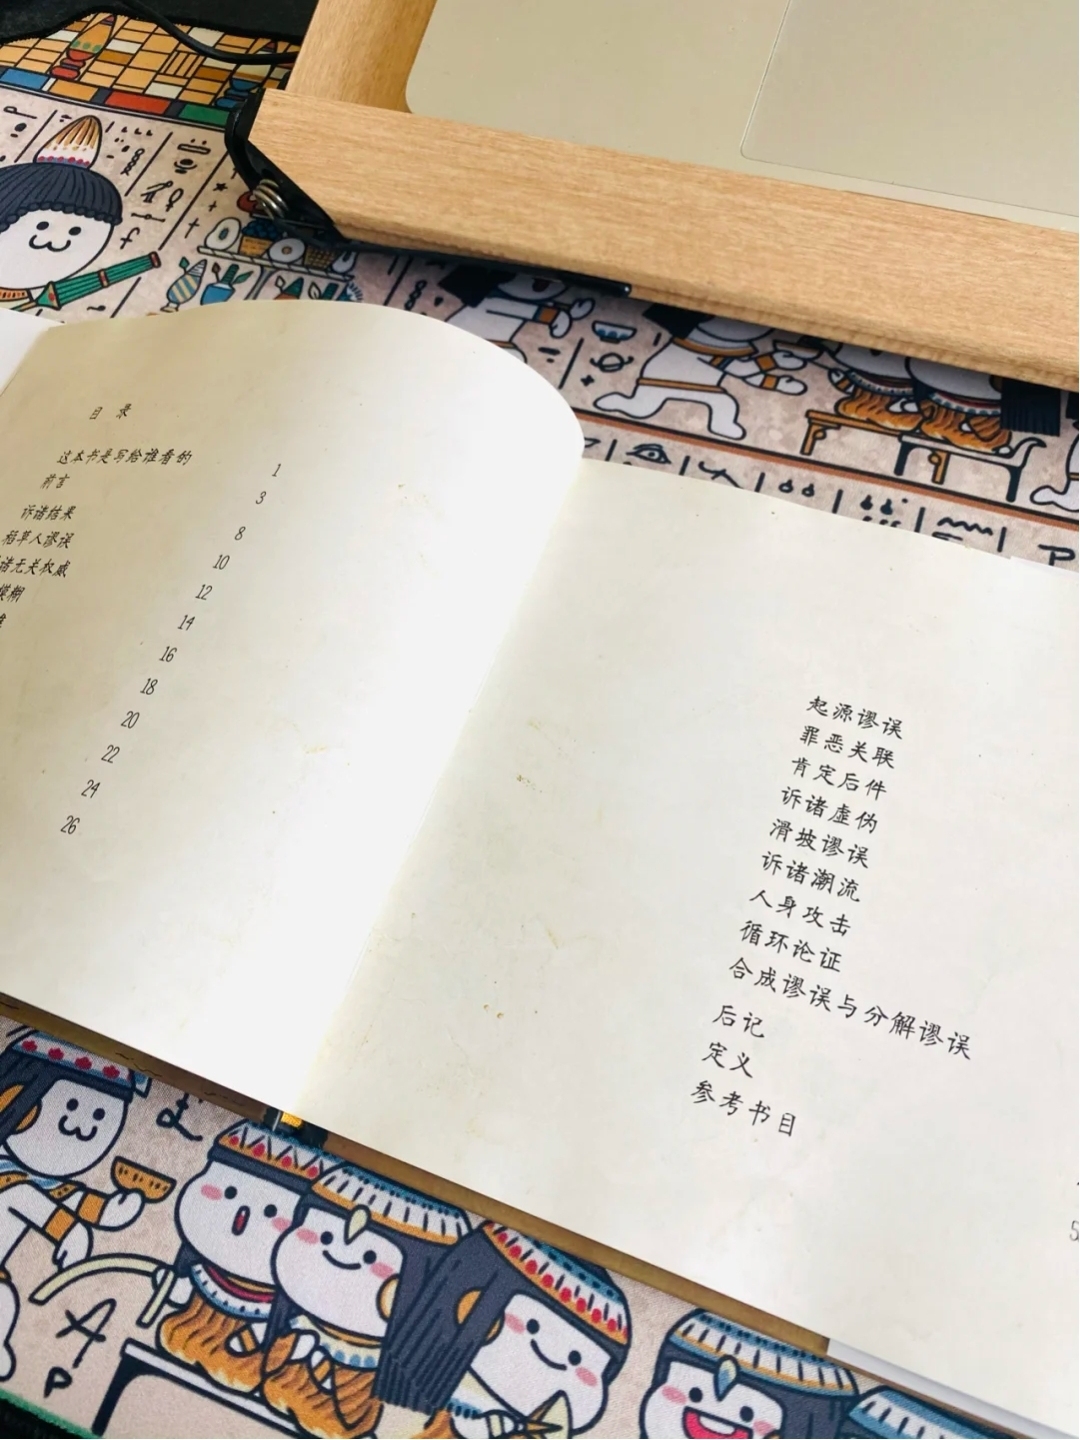 目 录
这本书是写给谁看的 1
前言 3
诉诸结果 8
稻草人谬误 10
诸无关权威 12
模糊 14
16
18
20
22
24
26
起源谬误
罪恶关联
肯定后件
诉诸虚伪
滑坡谬误
诉诸潮流
人身攻击
循环论证
合成谬误与分解谬误
后记
定义
参考书目